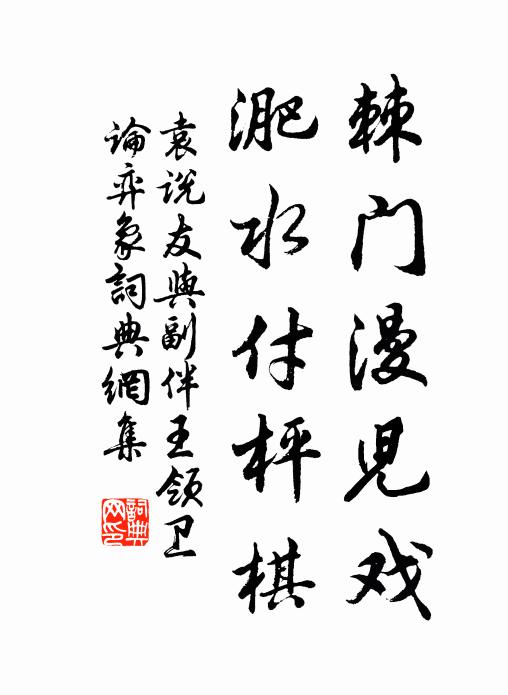 棘门漫児戏
淝水付枰棋
袁说友與副伴王领卫
論弈象詞典網集
詞典
网印